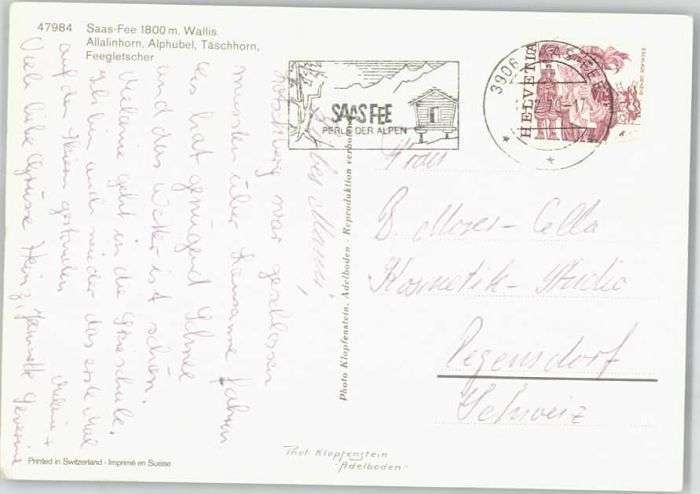 47984 Saas-Fee 1800 m, Wallis
Allalinhorn, Alphubel, Täschhorn,
Feegletscher
SAAS FEE
PERLE DER ALPEN
3906 SAAS-FEE
HELVETIA
Liebes Mami,
Lötschberg war geschlossen
mussten über Lausanne fahren
Es hat genügend Schnee
und das Wetter ist schön.
geht in die Skischule.
auch wieder das erste Mal
auf den Skiern gestanden
Viele liebe Grüsse Heinz, Jeannette Séverine
+
Frau
B. Moser-Cella
Kosmetik-Studio
Regensdorf
Schweiz
Photo Klopfenstein, Adelboden - Reproduktion verboten
Printed in Switzerland - Imprimé en Suisse
Phot Klopfenstein
"Adelboden"